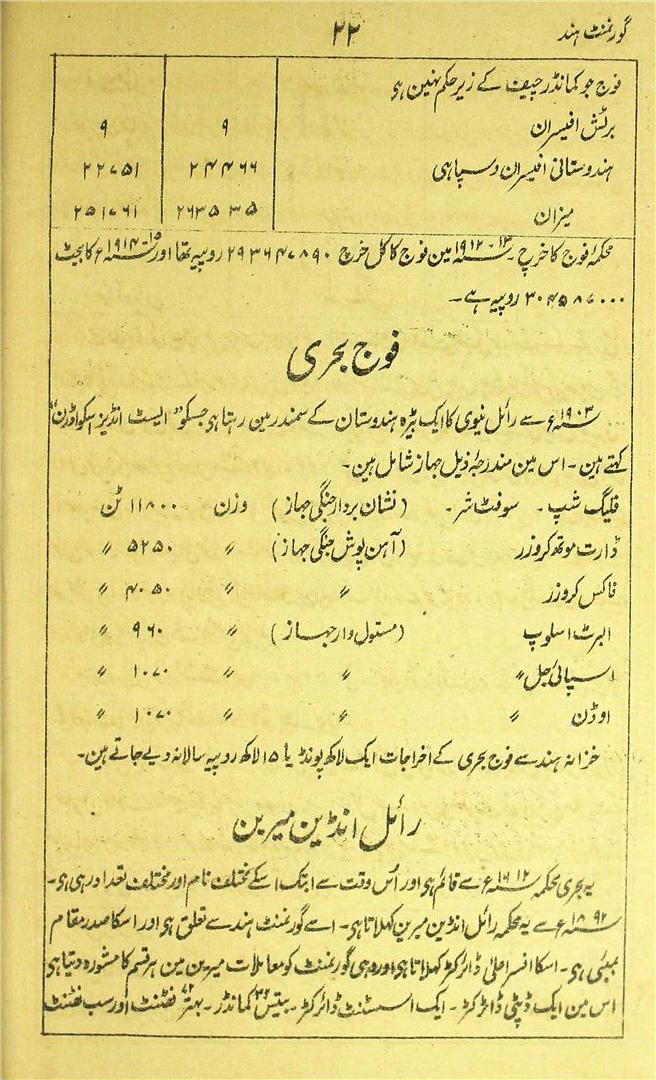 گورنمنٹ ہند
۲۲
فوج جو کمانڈر چیف کے زیر حکم نہین ہی
برٹش افیسران ۹ ۹
ہندوستانی افیسران و سپاہی ۲۴۴۶۶ ۲۲۷۵۱
میزان ۲۶۳۵۳۵ ۲۵۱۷۶۱
محکمۂ فوج کا خرچ ۱۳-۱۹۱۲ مین فوج کا کل خرچ ۲۹۳۶۴۷۸۹۰ روپیہ تھا اور ۱۵-۱۹۱۴ء کا بجٹ
۳۰۴۵۸۷۰۰۰ روپیہ ہے۔
فوج بحری
۱۹۰۳ء سے رائل نیوی کا ایک بیڑہ ہندوستان کے سمندر مین رہتا ہی جسکو "ایسٹ انڈیز اسکواڈرن"
کہتے ہین۔ اس مین مندرجۂ ذیل جہاز شامل ہین۔
فلیگ شپ۔ سوفٹ شر۔ (نشان بردار جنگی جہاز) وزن ۱۱۸۰۰ ٹن
ڈارٹ موتھ کروزر (آہن پوش جنگی جہاز) " ۵۲۵۰ "
فاکس کروزر " " ۴۰۵۰ "
البرٹ اسلوپ (مستول دار جہاز) " ۹۶۰ "
اسپائجل " " " ۱۰۷۰ "
اوڈن " " " ۱۰۷۰ "
خزانہ ہند سے فوج بحری کے اخراجات ایک لاکھ پونڈ یا ۱۵ لاکھ روپیہ سالانہ دیے جاتے ہین۔
رائل انڈین میرین
یہ بحری محکمہ ۱۶۱۲ء سے قائم ہی اور اُس وقت سے ابتک اسکے مختلف نام اور مختلف تعداد رہی ہی۔
۱۸۹۲ء سے یہ محکمہ رائل انڈین میرین کہلاتا ہی۔ اسے گورنمنٹ ہند سے تعلق ہی اور اسکا صدر مقام
بمبئی ہی۔ اسکا افسر اعلیٰ ڈائرکٹر کہلاتا ہی اور وہی گورنمنٹ کو معاملات میرین مین ہر قسم کا مشورہ دیتا ہی
اس مین ایک ڈپٹی ڈائرکٹر۔ ایک اسسٹنٹ ڈائرکٹر۔ بتیس ۳۲ کمانڈر۔ بہتر ۷۲ لفٹنٹ اور سب لفٹنٹ